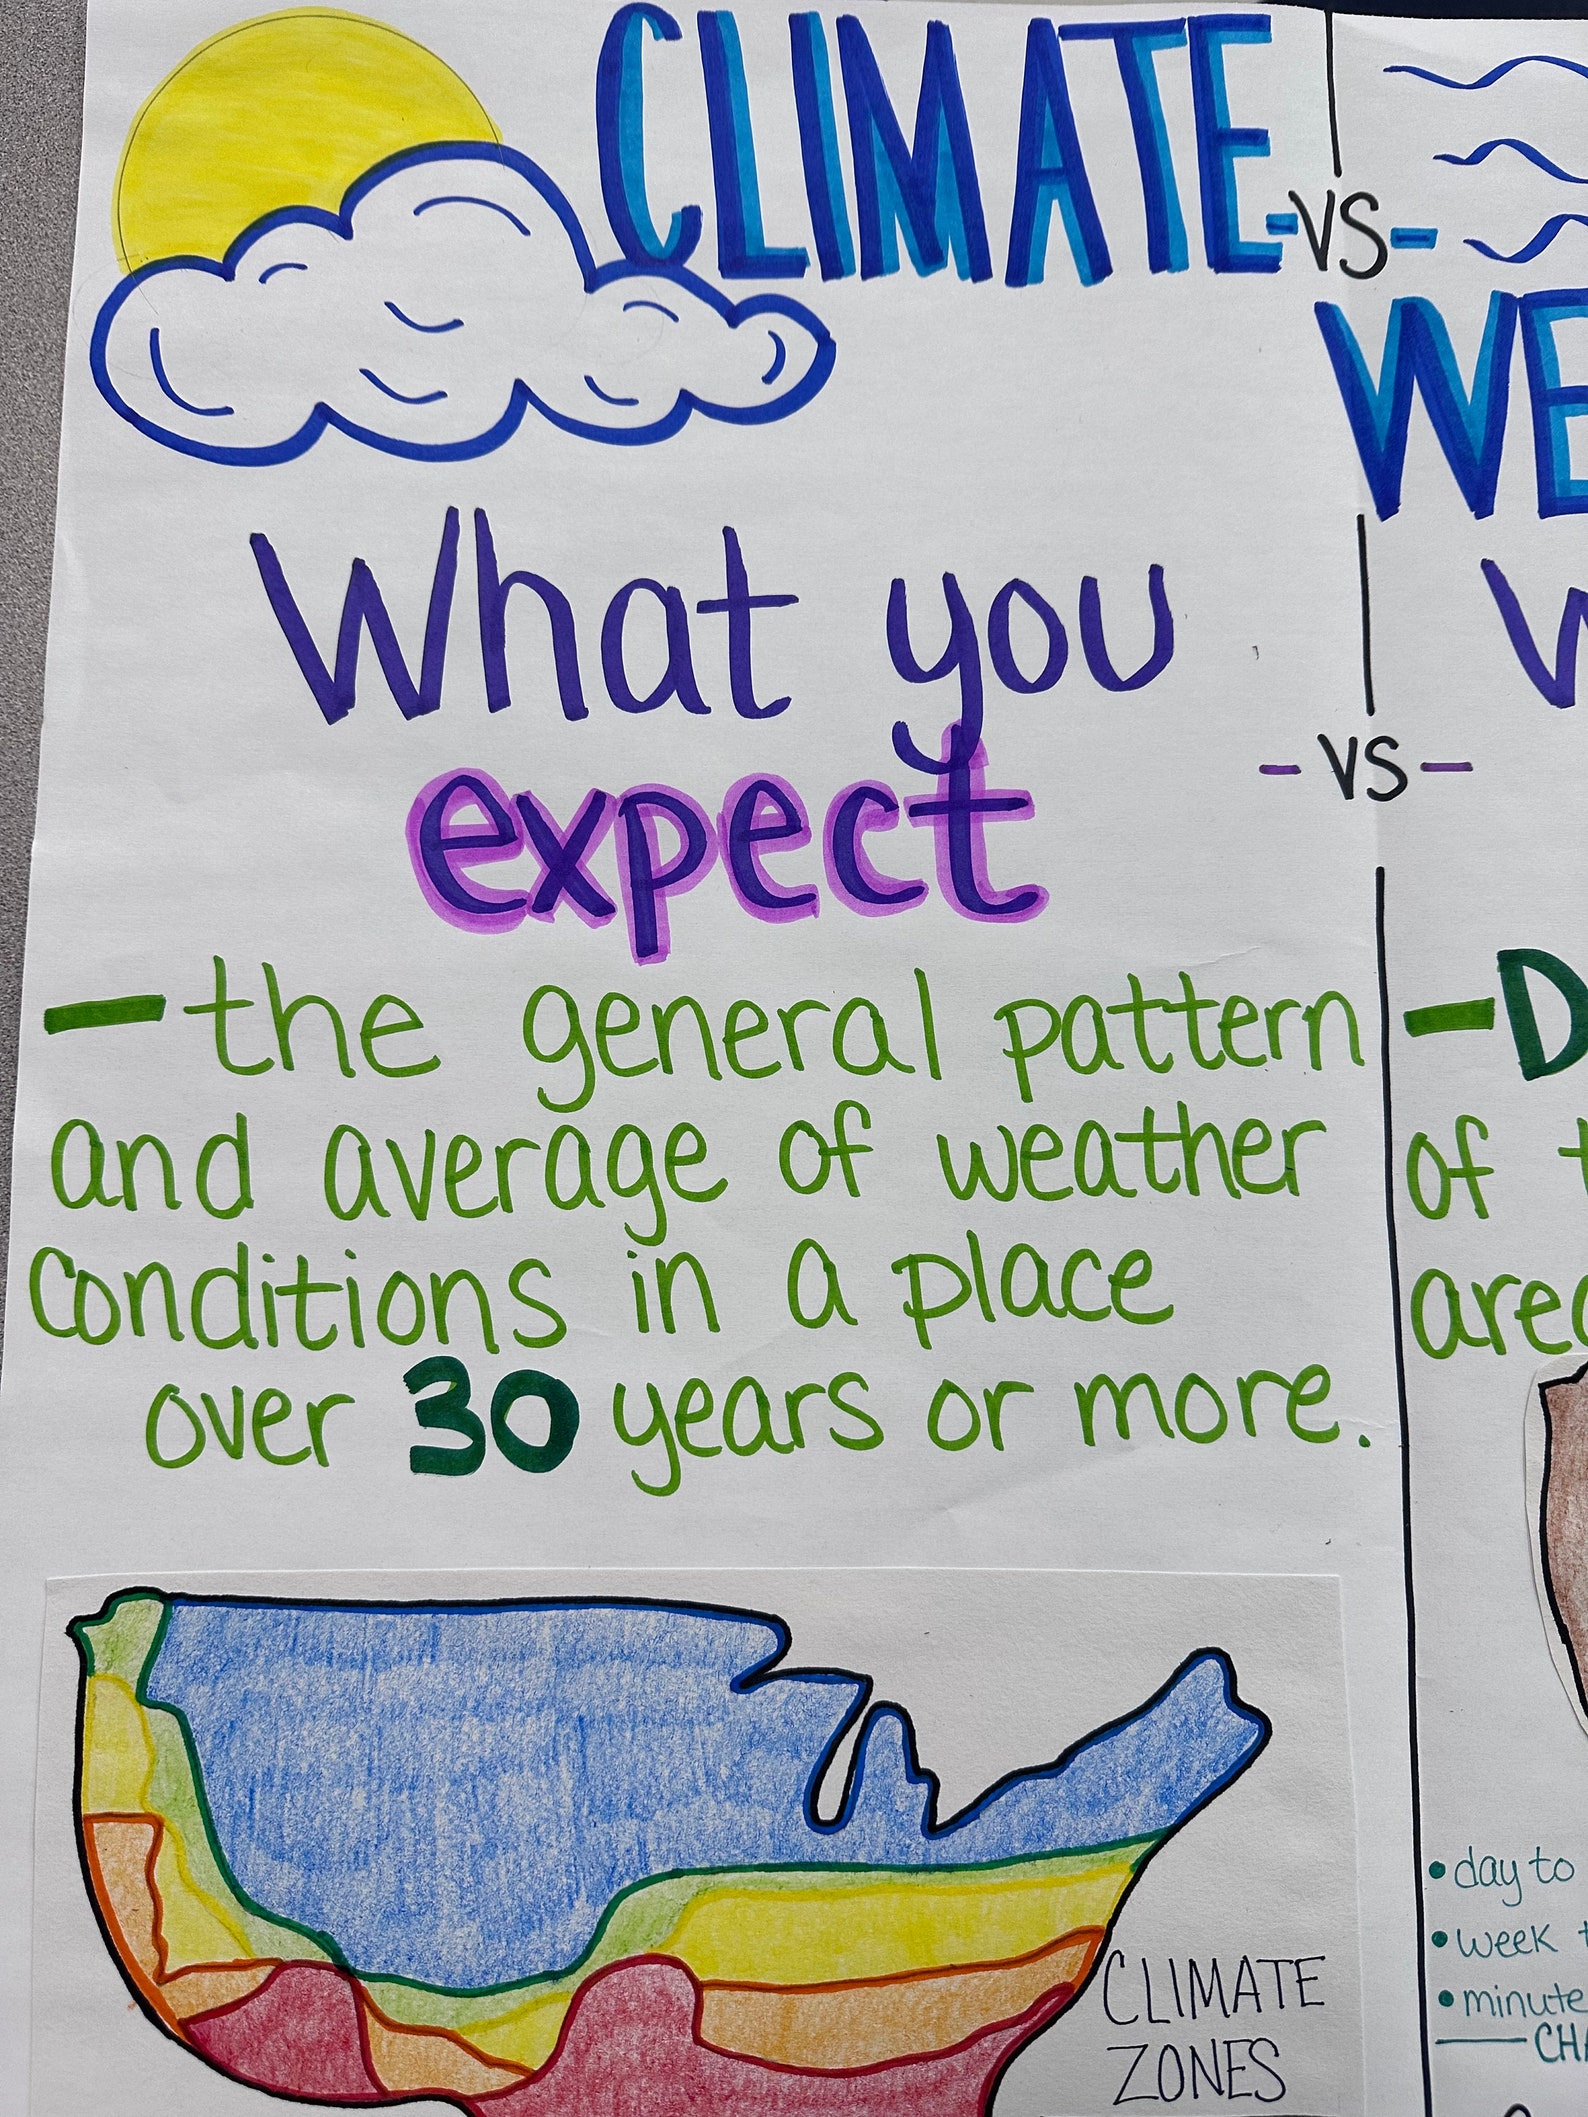 CLIMATE
-VS-
What you
expect
-the general pattern
and average of weather
conditions in a place
over 30 years or more.
CLIMATE
ZONES
-VS-
of
• day to
• week
• minute